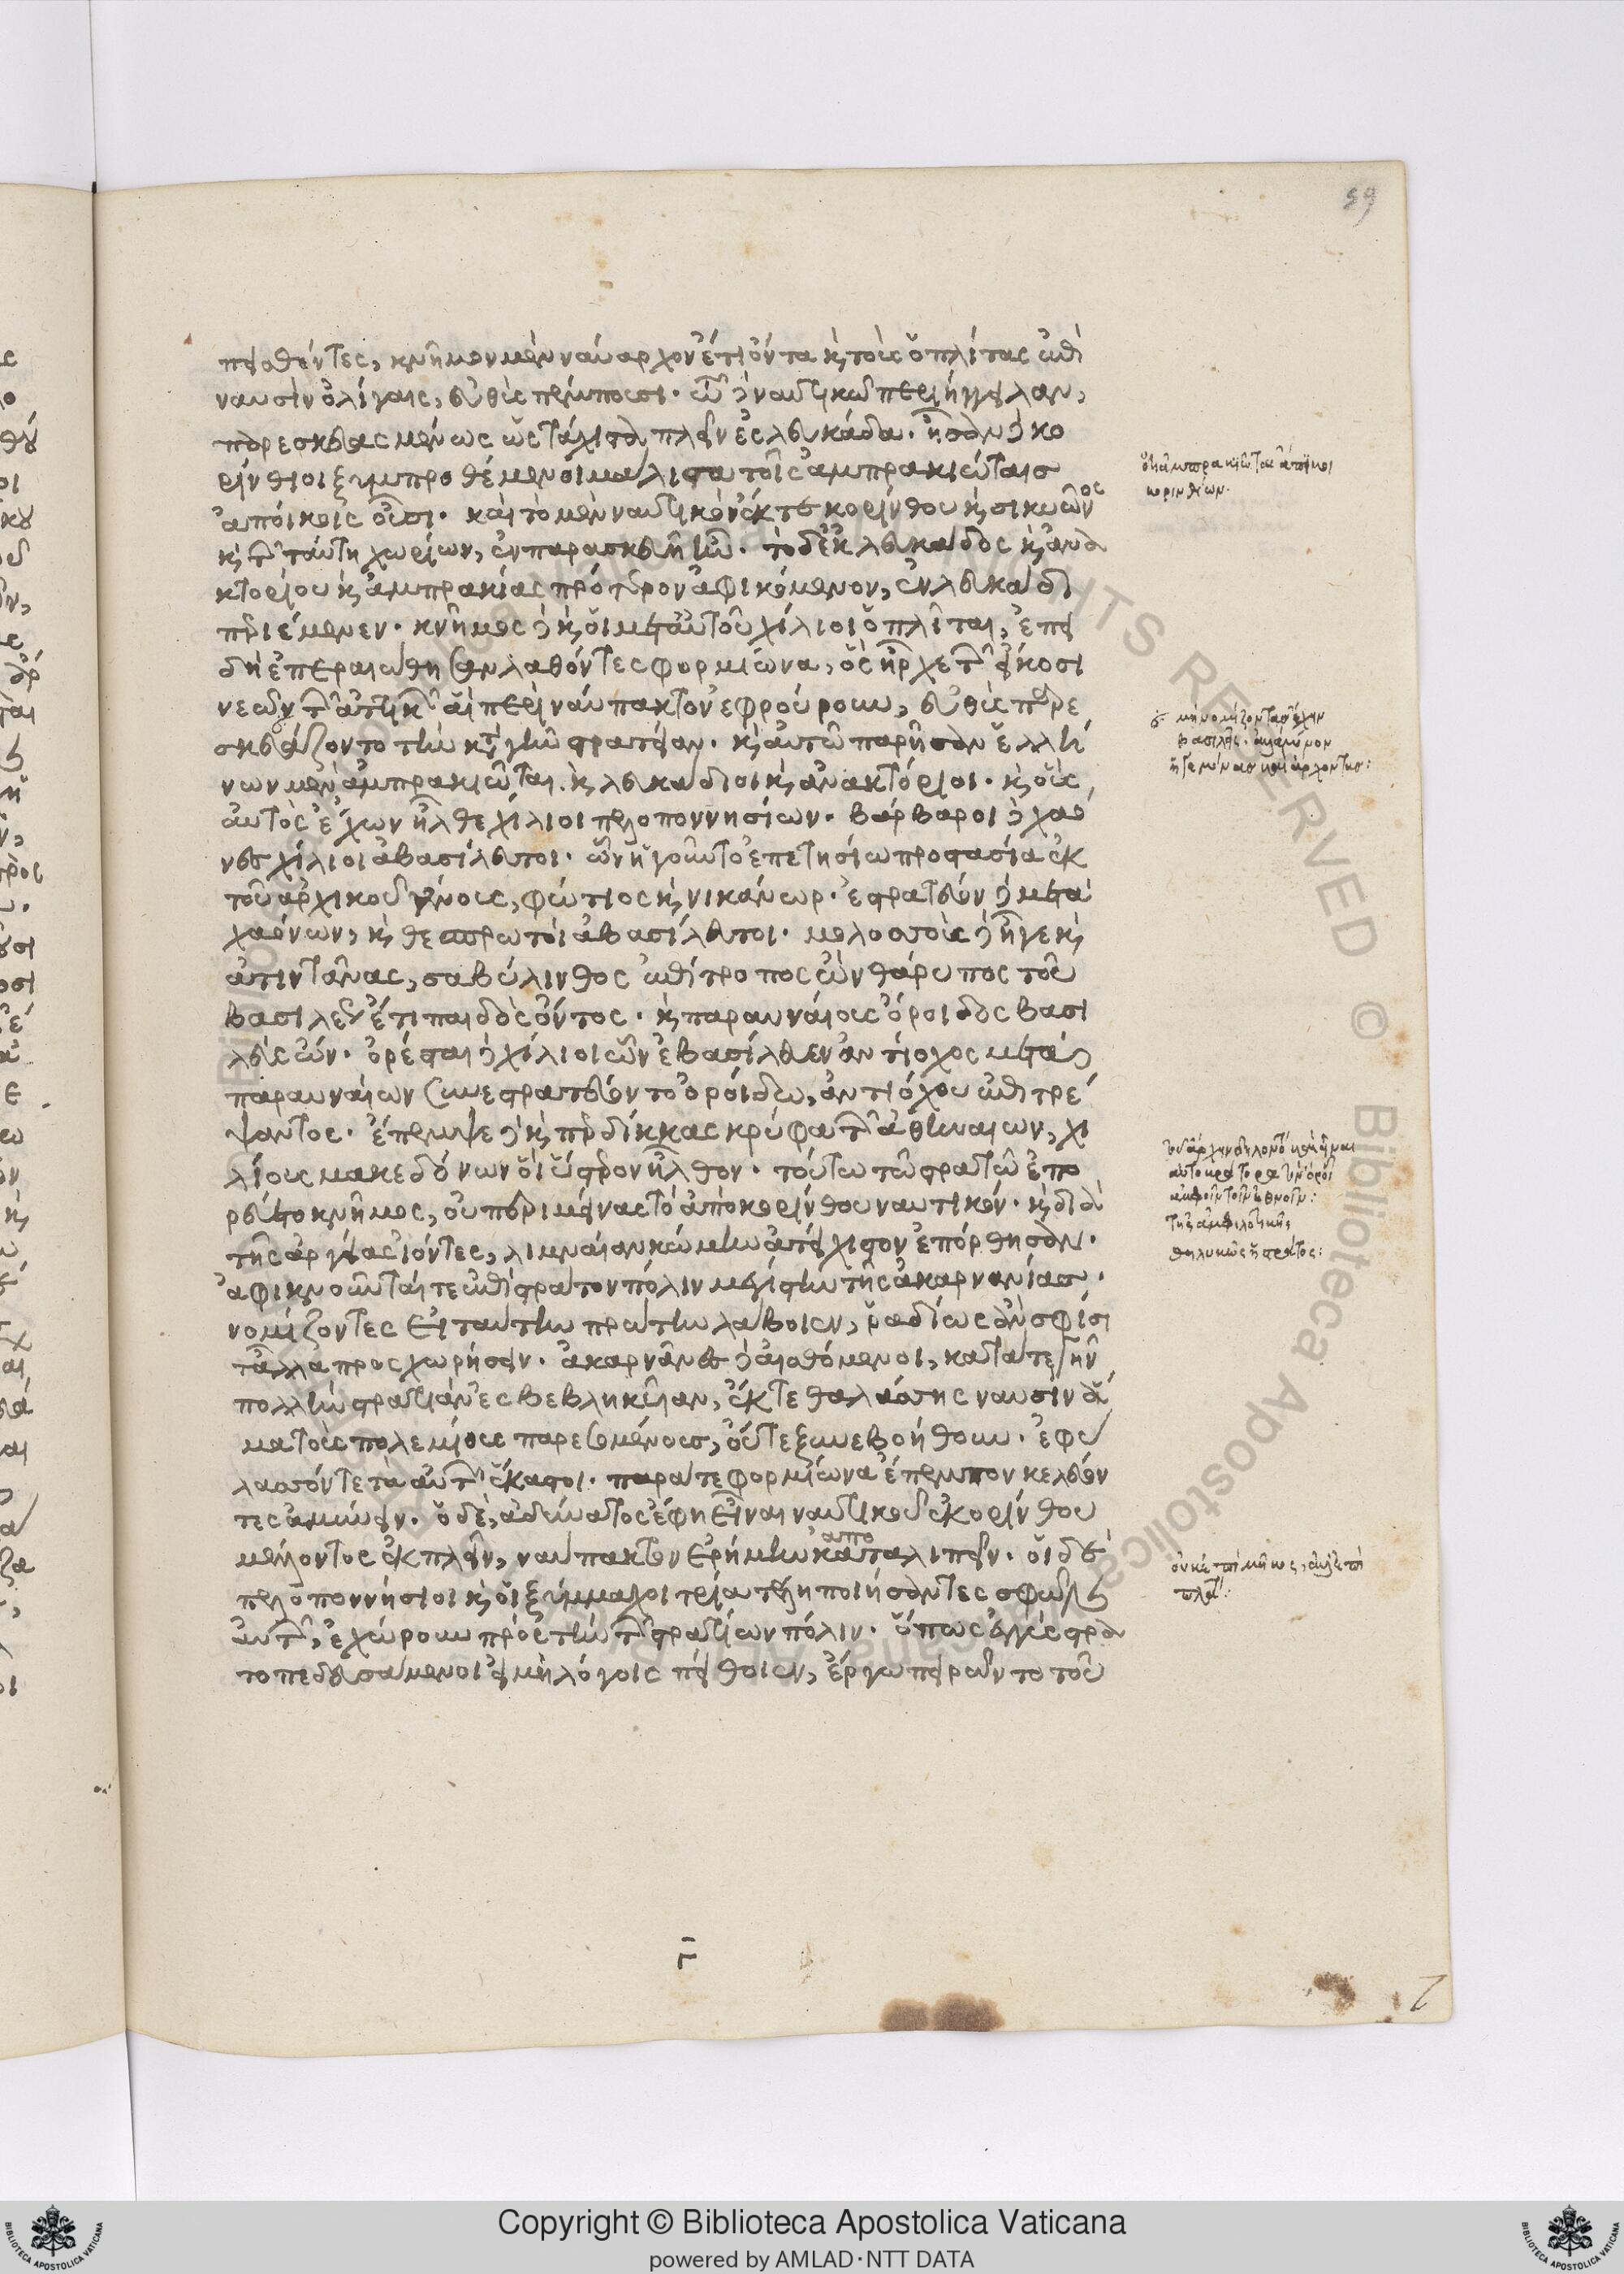 59
πεισθέντες, κνῆμον μὲν ναύαρχον ἔτι ὄντα καὶ τοὺς ὁπλίτας ἐπὶ
ναυσὶν ὀλίγαις, εὐθὺς πέμπουσι. τῶ δὲ ναυτικῶ περιήγγειλαν,
παρεσκευασμένως ὡς τάχιστα πλεῖν ἐς λευκάδα. ἦσαν δὲ κο
ρίνθιοι ξυμπροθέμενοι μάλιστα τοῖς ἀμπρακιώταισ
ἀποίκοις οὖσι. καὶ τὸ μὲν ναυτικὸν ἐκ τε κορίνθου καὶ σικυῶνος
καὶ τῶν ταύτη χωρίων, ἐν παρασκευῆ ἦν. τὸ δ' ἐκ λευκάδος καὶ ἀνα
κτορίου καὶ ἀμπρακίας πρότερον ἀφικόμενον, ἐν λευκάδι
περιέμενεν. κνῆμος δὲ καὶ οἱ μετ' αὐτοῦ χίλιοι ὁπλῖται, ἐπει
δὴ ἐπεραιώθησαν λαθόντες φορμίωνα, ὃς ἦρχε τῶν εἴκοσι
νεῶν τῶν ἀττικῶν αἳ περὶ ναύπακτον ἐφρούρουν, εὐθὺς παρε
σκευάζοντο τὴν κατὰ γῆν στρατείαν. καὶ αὐτῶ παρῆσαν ἑλλή
νων μὲν ἀμπρακιῶται. καὶ λευκάδιοι καὶ ἀνακτόριοι. καὶ οὓς
αὐτὸς ἔχων ἦλθε χίλιοι πελοποννησίων. βάρβαροι δὲ χάο
νες χίλιοι ἀβασίλευτοι. ὧν ἡγοῦντο ἐπετησίω προστασία ἐκ
τοῦ ἀρχικοῦ γένους, φώτιος καὶ νικάνωρ. ἐστρατεύοντο δὲ μετὰ
χαόνων, καὶ θεσπρωτοὶ ἀβασίλευτοι. μολοσσοὺς δὲ ἦγε καὶ
ἀτιντᾶνας, σαβύλινθος ἐπίτροπος ὢν θάρυπος τοῦ
βασιλέως ἔτι παιδὸς ὄντος. καὶ παραυναίους ὄροιδος βασι
λεὺς ὤν. ὀρέσται δὲ χίλιοι ὧν ἐβασίλευεν ἀντίοχος μετὰ
παραυναίων ξυνεστρατεύοντο ὀροίδω, ἀντιόχου ἐπιτρέ
ψαντος. ἔπεμψε δὲ καὶ περδίκκας κρύφα τῶν ἀθηναίων, χι
λίους μακεδόνων οἳ ὕστερον ἦλθον. τούτω τῶ στρατῶ ἐπο
ρεύετο κνῆμος, οὐ περιμείνας τὸ ἀπὸ κορίνθου ναυτικόν. καὶ διὰ
τῆς ἀργείας ἰόντες, λιμναίαν κώμην ἀτείχιστον ἐπόρθησαν.
ἀφικνοῦνταί τε ἐπὶ στράτον πόλιν μεγίστην τῆς ἀκαρνανίασ.
νομίζοντες εἰ ταύτην πρώτην λάβοιεν, ῥαδίως ἂν σφίσι
τἆλλα προσχωρήσειν. ἀκαρνᾶνες δὲ αἰσθόμενοι, κατά τε γῆν
πολλὴν στρατιὰν ἐσβεβληκυῖαν, ἔκ τε θαλάσσης ναυσὶν ἅ
μα τοὺς πολεμίους παρεσομένους, οὔτε ξυνεβοήθουν. ἐφύ
λασσόν τε τὰ αὑτῶν ἕκαστοι. παρά τε φορμίωνα ἔπεμπον κελεύον
τες ἀμύνειν. ὁ δὲ, ἀδύνατος ἔφη εἶναι ναυτικοῦ ἐκ κορίνθου
μέλλοντος ἐκπλεῖν, ναύπακτον ἐρήμην καταλιπεῖν. οἱ δὲ
ἀπο
πελοποννήσιοι καὶ οἱ ξύμμαχοι τρία τέλη ποιήσαντες σφῶν
αὐτῶν, ἐχώρουν πρὸς τὴν τῶν στρατίων πόλιν. ὅπως ἐγγὺς στρα
τοπεδευσάμενοι εἰ μὴ λόγοις πείθοιεν, ἔργω πειρῶντο τοῦ
ὅτι ἀμπρακιῶται ἄποικοι
κορινθίων.
μὴ νομίζοντας ἔχειν
βασιλέα. ἀλλὰ μόνον
ἡγεμόνας καὶ ἄρχοντας:
θηλυκῶς ἡ στράτος:
Copyright © Biblioteca Apostolica Vaticana
powered by AMLAD·NTT DATA